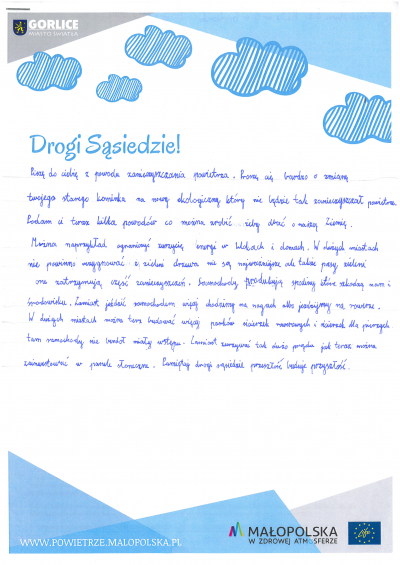 GORLICE
MIASTO ŚWIATŁA
Drogi Sąsiedzie!
Piszę do ciebie z powodu zanieczyszczania powietrza. Proszę cię bardzo o zmianę
twojego starego kominka na nowy ekologiczny, który nie będzie tak zanieczyszczał powietrza.
Podam ci teraz kilka powodów co można zrobić żeby dbać o naszą Ziemię.
Można naprzykład ograniczyć zużycie energi w blokach i domach. W dużych miastach
nie powinno rezygnować z zieleni drzewa nie są najważniejsze ale także pasy zieleni
one zatrzymują część zanieczyszczeń. Samochody produkują spaliny które szkodzą nam i
środowisku. Zamiast jeździć samochodem więcej chodźmy na nogach albo jeździjmy na rowerze.
W dużych miastach można też budować więcej parków ścieżek rowerowych i ścieżek dla pieszych
tam samochody nie będą miały wstępu. Zamiast zużywać tak dużo prądu jak teraz można
zainwestować w panele słoneczne. Pamiętaj drogi sąsiedzie przeszłość buduje przyszłość.
WWW.POWIETRZE.MALOPOLSKA.PL
MAŁOPOLSKA
W ZDROWEJ ATMOSFERZE
life